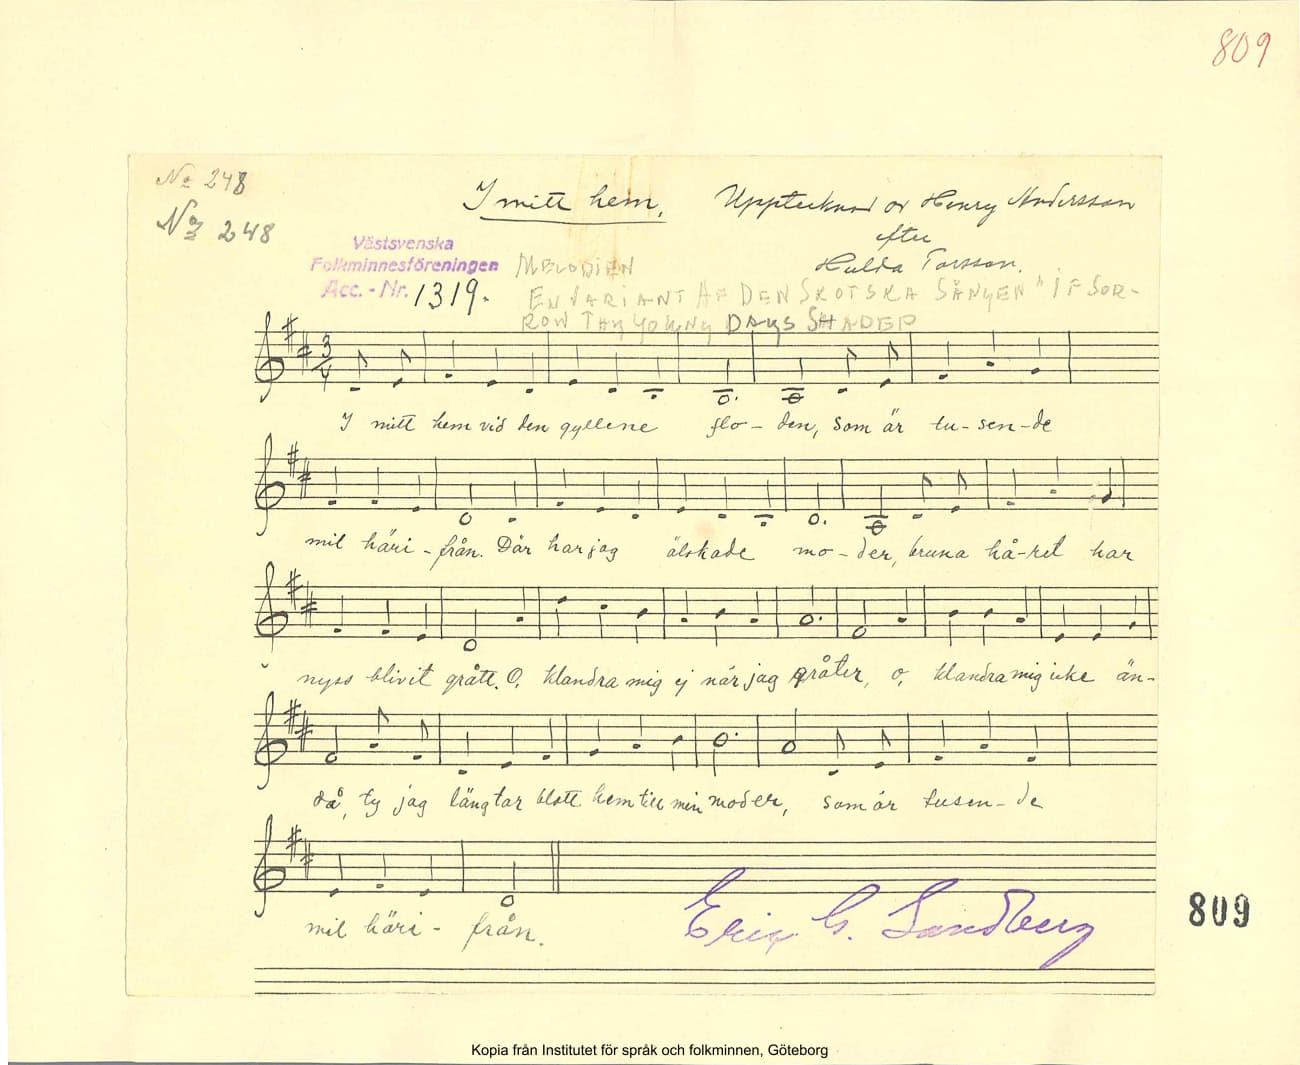 809
No 248
No 248
I mitt hem.
Upptecknad av Henry Andersson
efter
Hulda Torsson.
Västsvenska
Folkminnesföreningen
Acc.-Nr. 1319.
MELODIEN
EN VARIANT AF DEN SKOTSKA SÅNGEN "IF SOR-
ROW THY YOUNG DAYS SHADED
3
4
I mitt hem vid den gyllene flo- den, som är tu-sen-de
mil häri-från. Där har jag älskade mo-der, bruna hå-ret har
nyss blivit grått. O, klandra mig ej när jag gråter, o, klandra mig icke än-
då, ty jag längtar blott hem till min moder, som är tusen-de
mil häri- från.
Eric G. Sandberg
809
Kopia från Institutet för språk och folkminnen, Göteborg